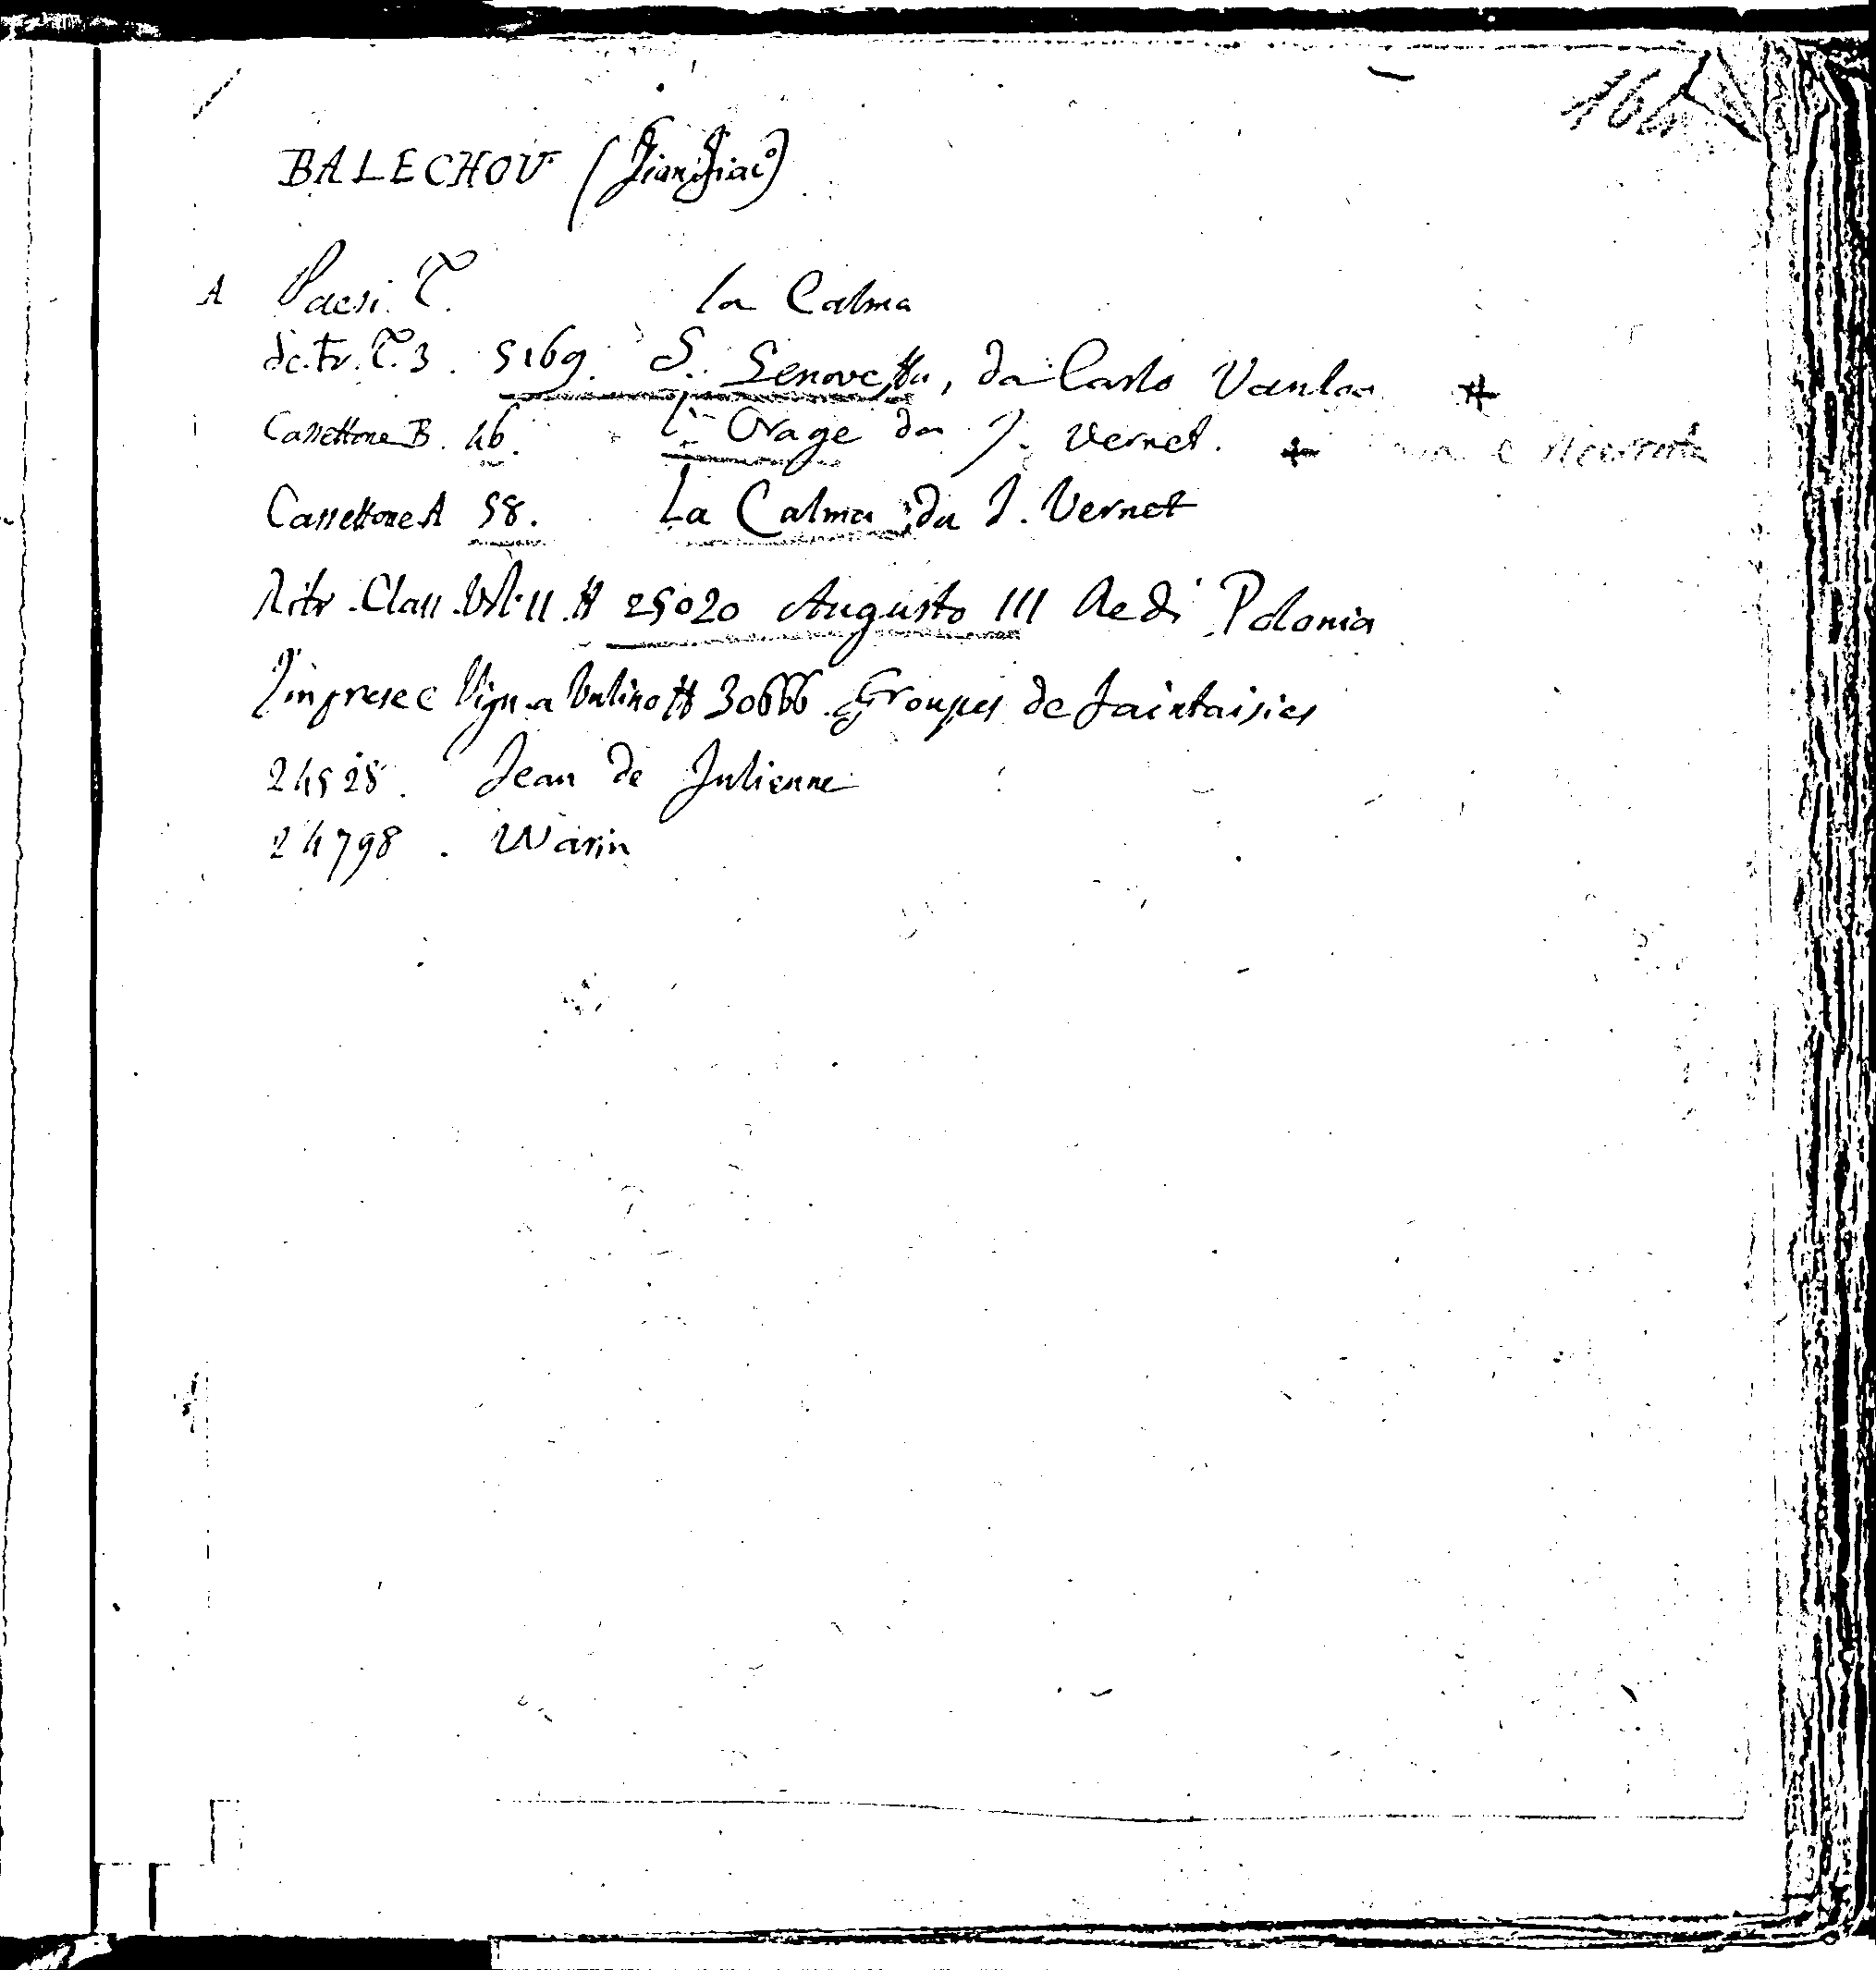 164
BALECHOU (Gian Giac.º)
A Paesi. T. la Calma
Sc. Fr. T. 3. 5169. S. Genoveffa, da Carlo Vanloo #
Cassettone B. 46. L'Orage da J. Vernet. +
Cassettone A 58. La Calma da J. Vernet
Ritr. Class. Vol. II. # 25020 Augusto III Re di Polonia
Imprese e Vign. a bulino # 30666. Groupes de faintaisies
24528. Jean de Julienne
24798. Warin